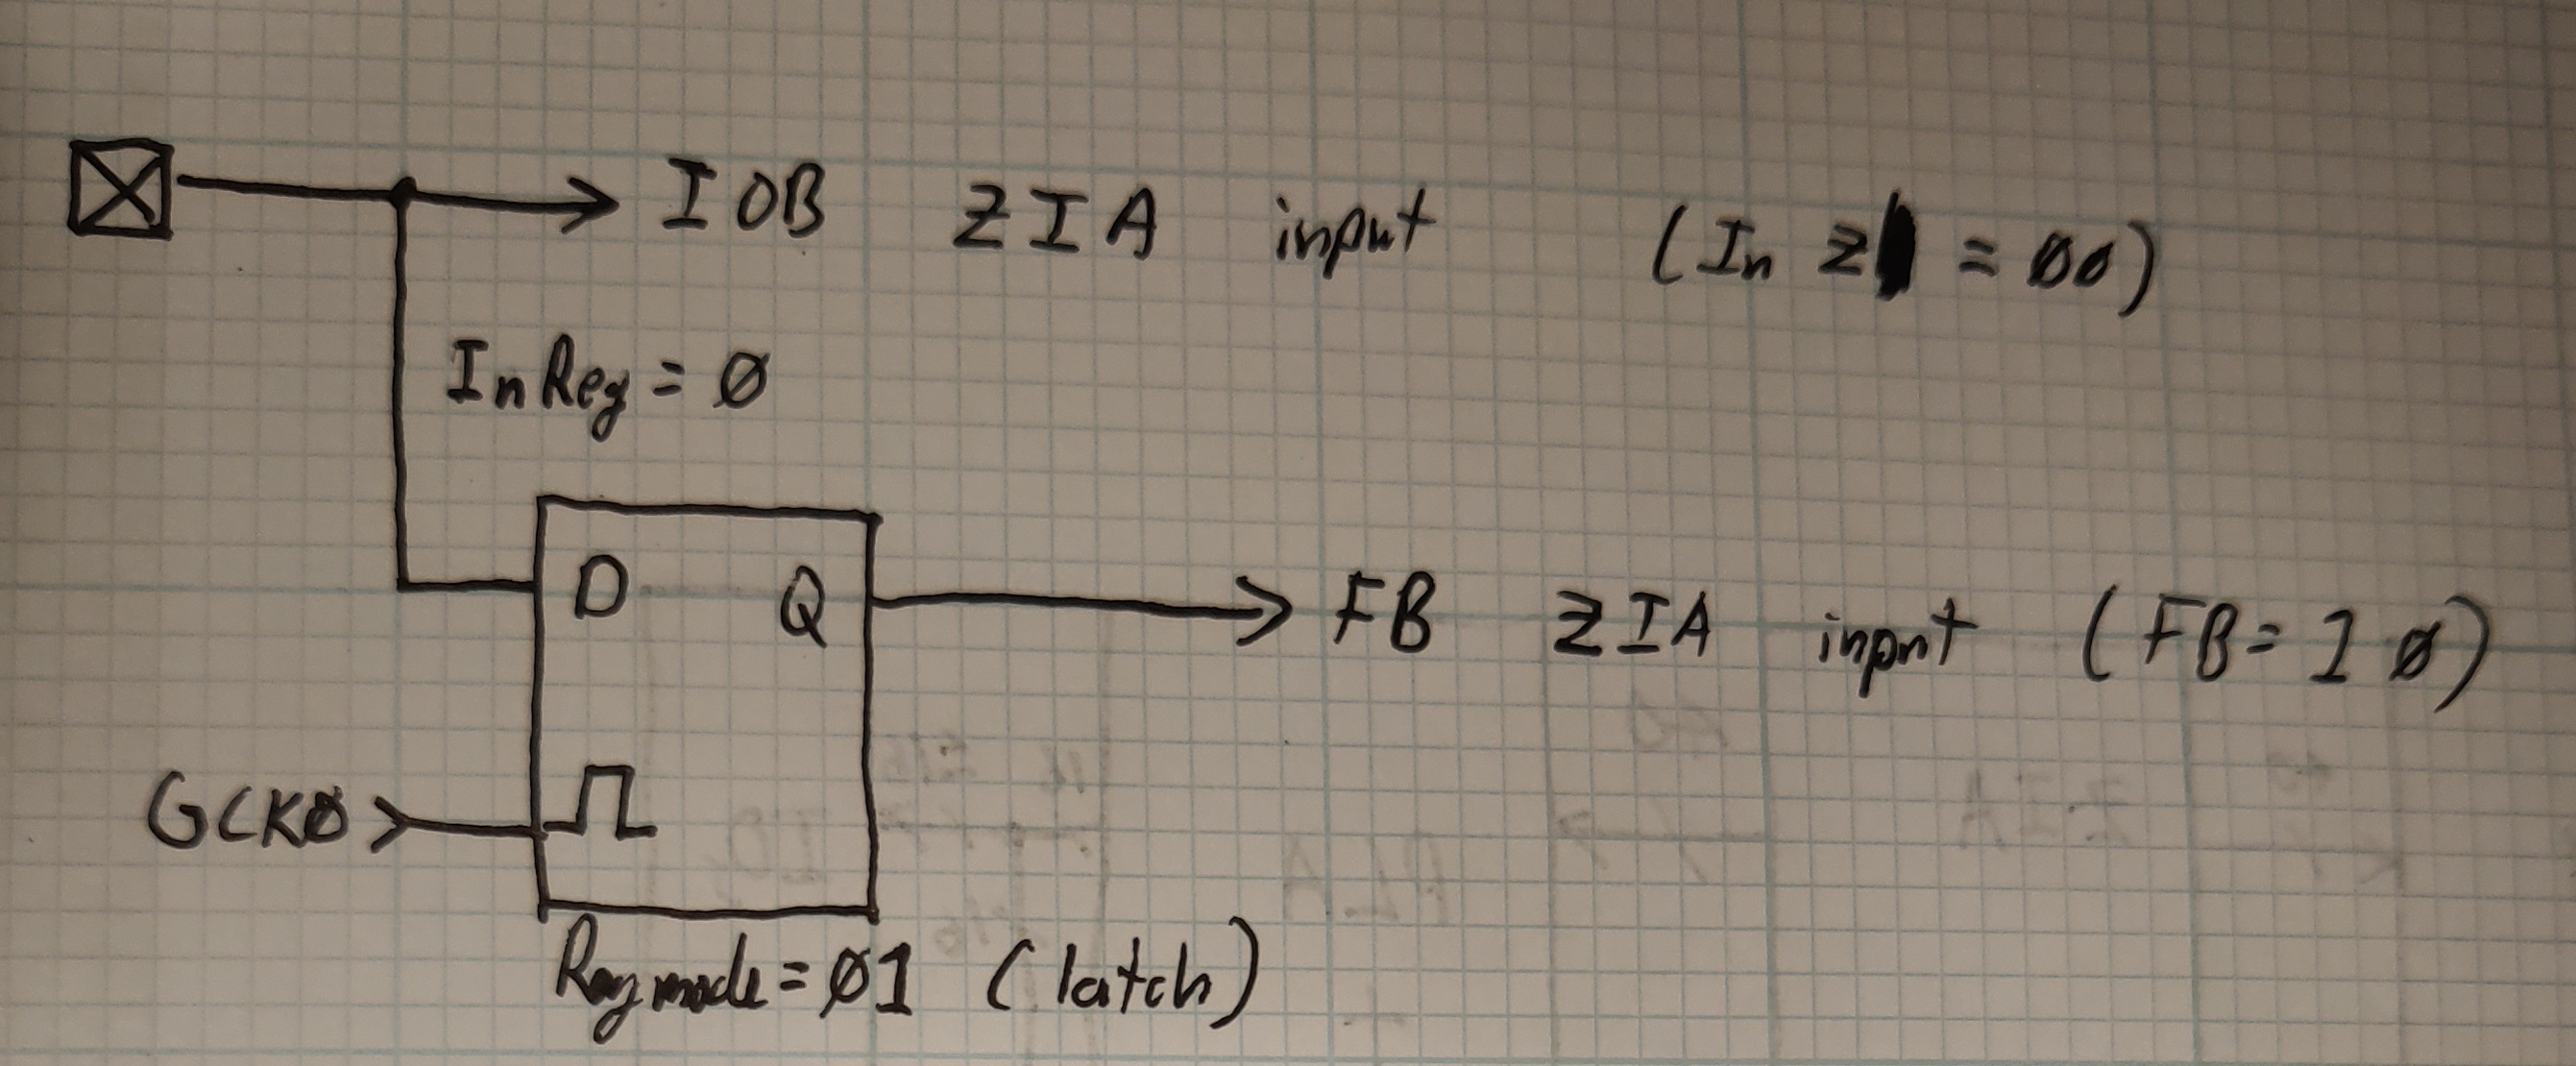 IOB ZIA input (In Z = ØØ)
InReg = Ø
D Q FB ZIA input (FB = 1Ø)
GCKØ
Regmode = Ø1 (latch)